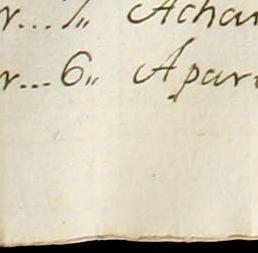 r...7,, Achar
r...6,, Apar